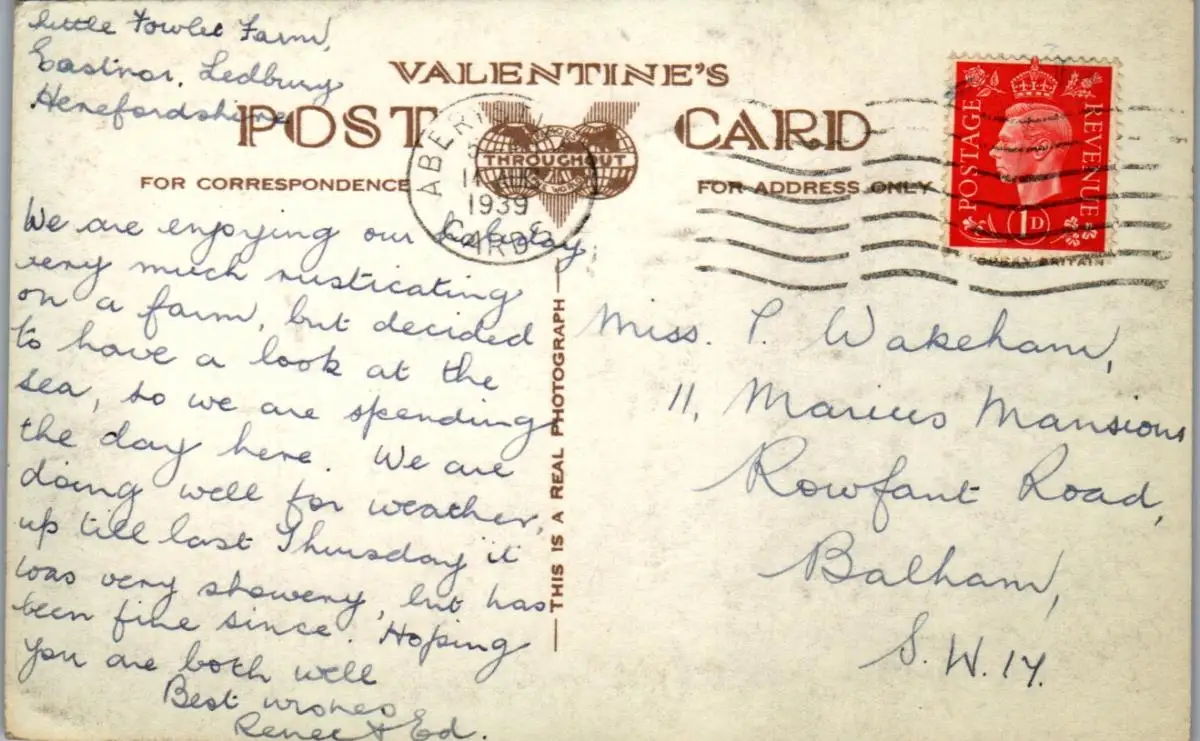 Little Fowlet Farm,
Eastnor, Ledbury
Herefordshire
VALENTINE'S
POST CARD
THROUGHOUT
FOR CORRESPONDENCE
FOR ADDRESS ONLY
14 AUG
1939
CARD
POSTAGE REVENUE
1D
We are enjoying our holiday
very much rusticating
on a farm, but decided
to have a look at the
sea, so we are spending
the day here. We are
doing well for weather,
up till last Thursday it
was very showery, but has
been fine since. Hoping
you are both well
Best wishes
Renee & Ed.
THIS IS A REAL PHOTOGRAPH
Miss. P. Wakeham,
11, Marius Mansions
Rowfant Road,
Balham,
S.W.17.